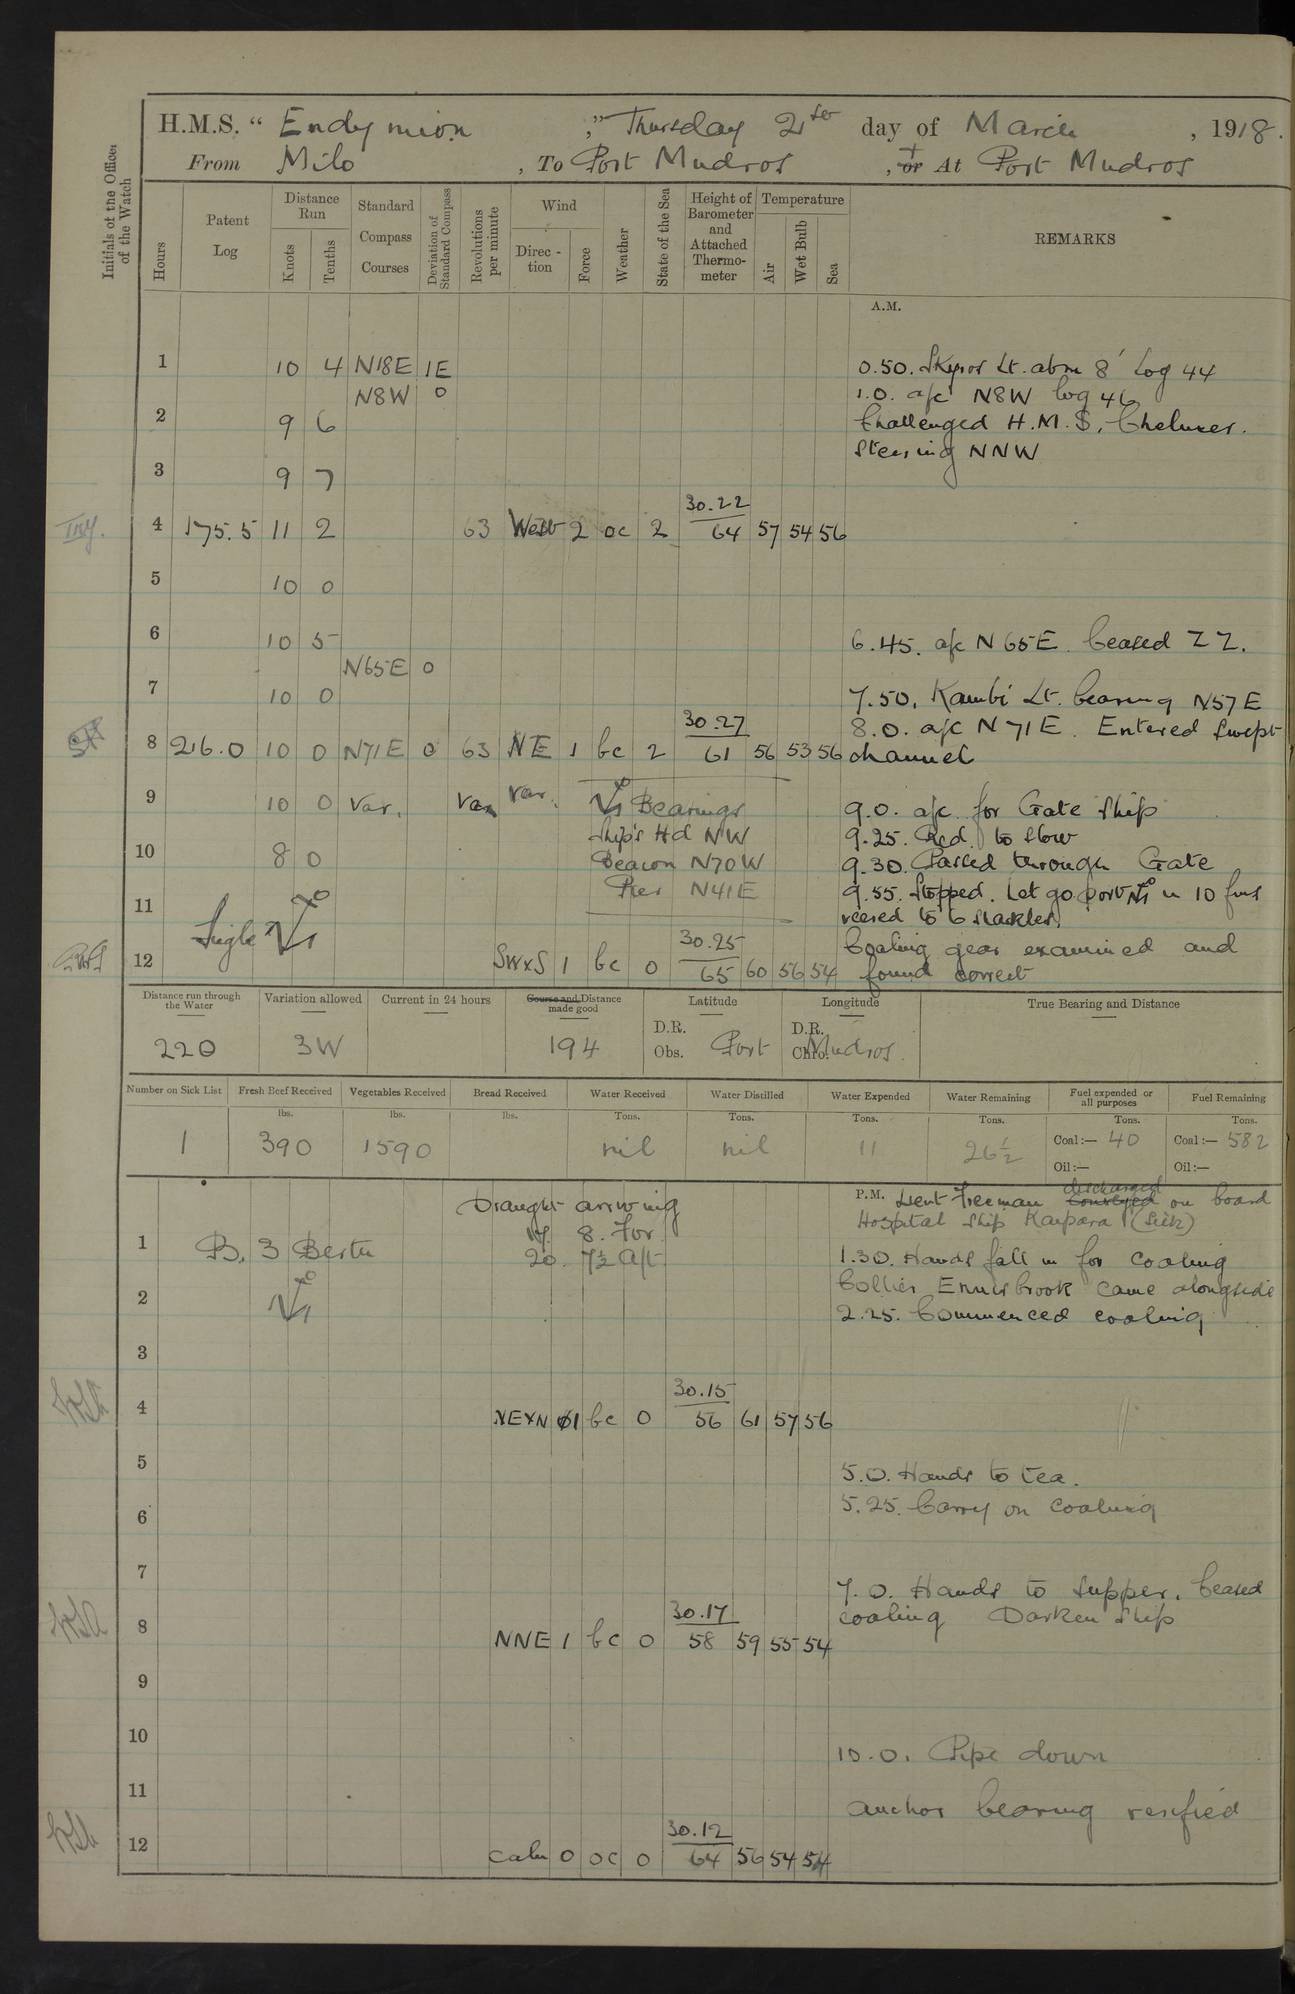 H.M.S. “ Endymion ,” Thursday 21st day of March , 1918.
From Milo , To Port Mudros , or + At Port Mudros
Initials of the Officer of the Watch
Hours
Patent Log
Distance Run
Knots
Tenths
Standard Compass Courses
Deviation of Standard Compass
Revolutions per minute
Wind
Direc - tion
Force
Weather
State of the Sea
Height of Barometer and Attached Thermo- meter
Temperature
Air
Wet Bulb
Sea
REMARKS
A.M.
1 10 4 N18E 1E 0.50. Skyros Lt. abm 8' Log 44
N8W 0 1.0. a/c N8W log 46
2 9 6 Challenged H.M.S.
Steering NNW
3 9 7
30.22
4 175.5 11 2 63 West 2 oc 2 64 57 54 56
5 10 0
6 10 5 6.45. a/c N65E. Ceased Z Z.
N65E 0
7 10 0 7.50. Kombi Lt. bearing N57E
30.27 8.0. a/c N71E. Entered Swept
8 216.0 10 0 N71E 0 63 NE 1 bc 2 61 56 53 56 channel
9 10 0 Var. Var Var. Bearings 9.0. a/c for Gate Ship
Ship's Hd NW 9.25. Red. to slow
10 8 0 Beacon N70W 9.30. Passed through Gate
Pier N41E 9.55. Stopped. Let go port in 10 fms
11 Single veered to 6 shackles.
30.25 Coaling gear examined and
12 SWxS 1 bc 0 65 60 56 54 found correct
Distance run through the Water
Variation allowed
Current in 24 hours
Course and Distance made good
Latitude
Longitude
True Bearing and Distance
D.R. D.R.
220 3W 194 Obs. Port Chro. Mudros.
Number on Sick List
Fresh Beef Received
Vegetables Received
Bread Received
Water Received
Water Distilled
Water Expended
Water Remaining
Fuel expended or all purposes
Fuel Remaining
lbs. lbs. lbs. Tons. Tons. Tons. Tons. Tons. Tons.
1 390 1590 nil nil 11 26½ Coal:— 40 Coal:— 582
Oil:— Oil:—
Draught arriving P.M. Lieut Freeman discharged on board
17. 8. For. Hospital Ship Karpara (Sick)
1 B. 3 Berth 20. 7½ Aft 1.30. Hands fall in for coaling
Collier Ennisbrook came alongside
2 2.25. Commenced coaling
3
30.15
4 NExN 1 bc 0 56 61 57 56
5 5.0. Hands to tea.
5.25. Carry on coaling
6
7 7.0. Hands to supper. Ceased
30.17 coaling Darken Ship
8 NNE 1 bc 0 58 59 55 54
9
10 10.0. Pipe down
11 anchor bearing verified
30.12
12 calm 0 oc 0 64 56 54 54